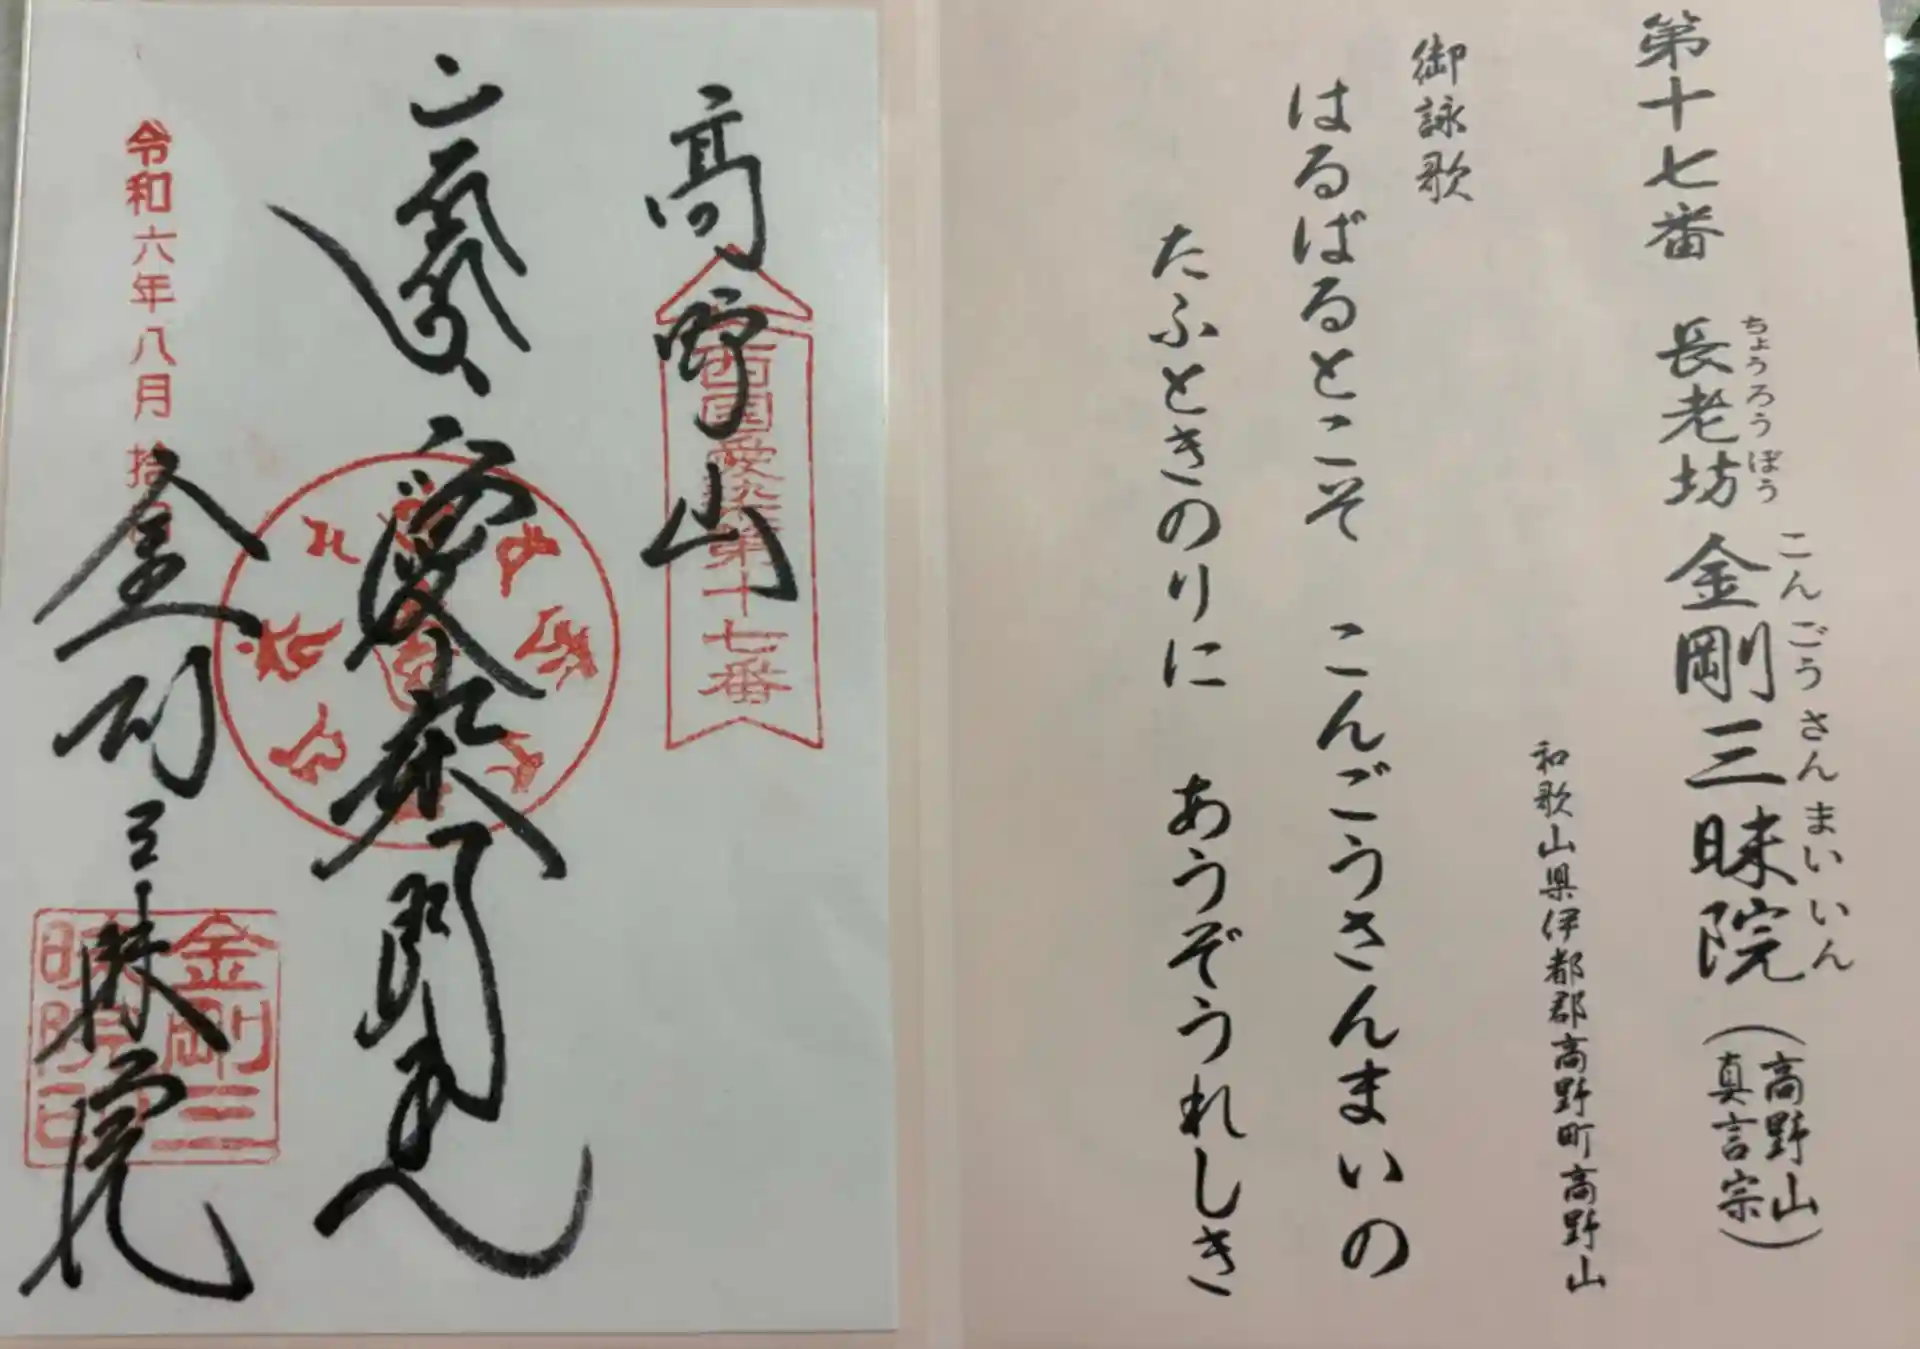 第十七番 長老坊 金剛三昧院（高野山真言宗）
ちょうろうぼう こんごうさんまいいん
和歌山県伊都郡高野町高野山
御詠歌
はるばるとこそ こんごうさんまいの
たふときのりに あうぞうれしき
高野山
西国愛染第十七番
愛染明王
令和六年八月拾
金剛三昧院
金剛三昧院印